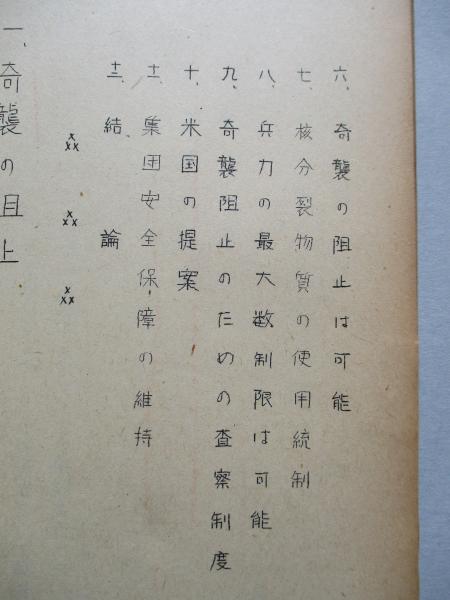 六、奇襲の阻止は可能
七、核分裂物質の使用統制
八、兵力の最大数制限は可能
九、奇襲阻止のための査察制度
十、米国の提案
十一、集団安全保障の維持
十二、結論
×××　×××　×××
一、奇襲の阻止